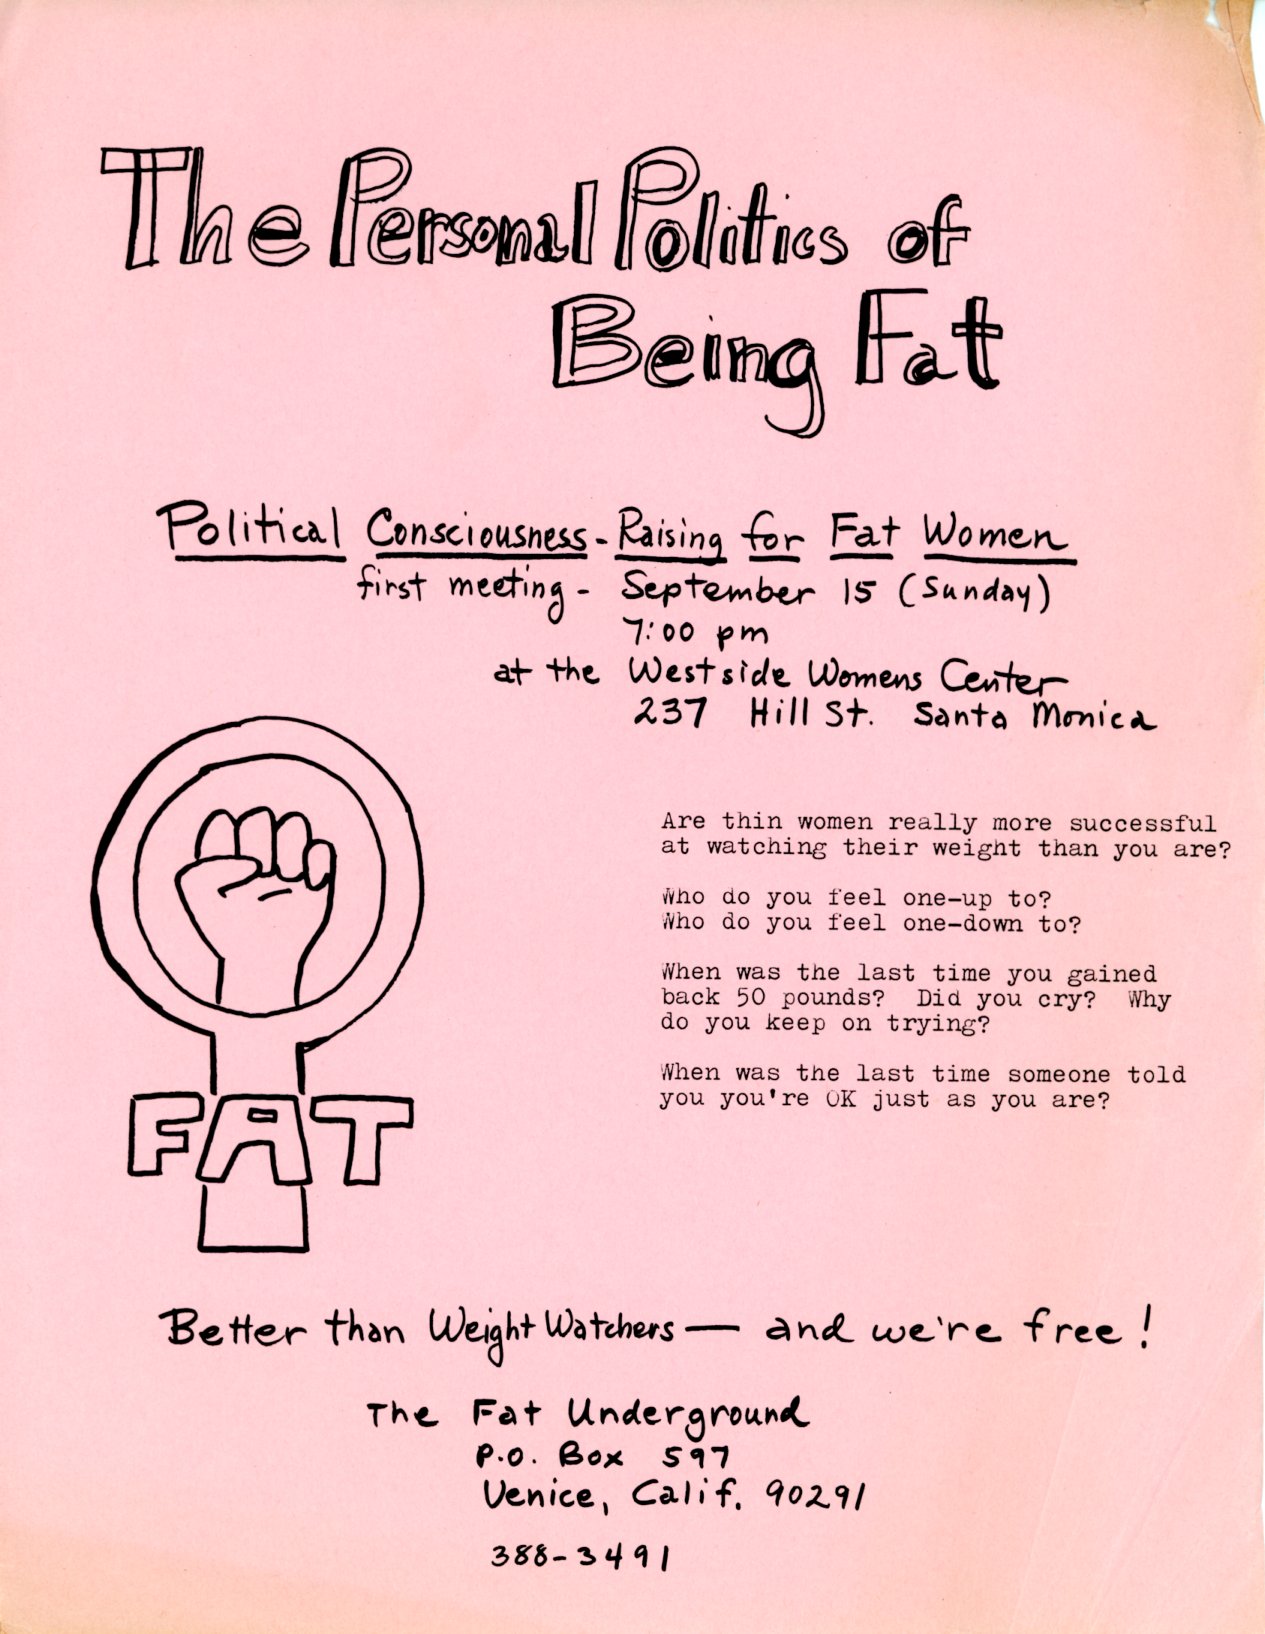 The Personal Politics of
Being Fat
Political Consciousness-Raising for Fat Women
first meeting - September 15 (Sunday)
7:00 pm
at the Westside Womens Center
237 Hill St. Santa Monica
Are thin women really more successful
at watching their weight than you are?
Who do you feel one-up to?
Who do you feel one-down to?
When was the last time you gained
back 50 pounds?  Did you cry?  Why
do you keep on trying?
When was the last time someone told
you you're OK just as you are?
FAT
Better than Weight Watchers — and we're free!
The Fat Underground
P.O. Box 597
Venice, Calif. 90291
388-3491